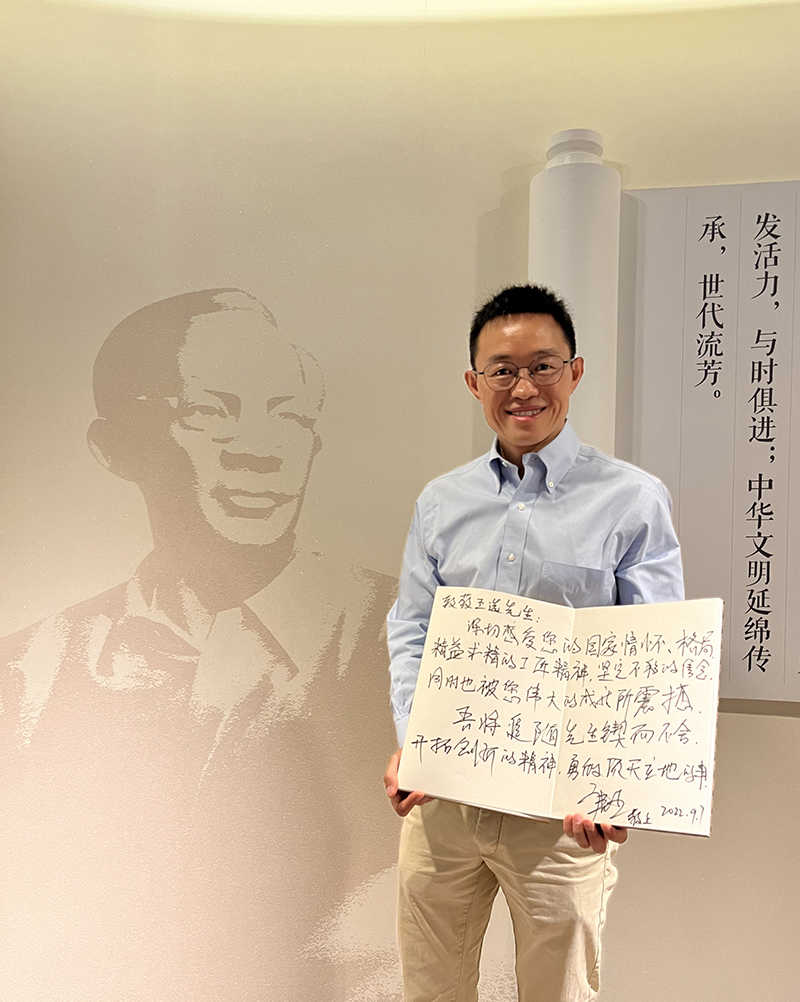 发活力，与时俱进；中华文明延绵传
承，世代流芳。
致敬王选先生：
深切感受您的国家情怀、格局、
精益求精的工匠精神,坚定不移的信念.
同时也被您伟大的成就所震撼.
吾将追随先生锲而不舍、
开拓创新的精神,勇做顶天立地的事.
敬上 2022.9.7